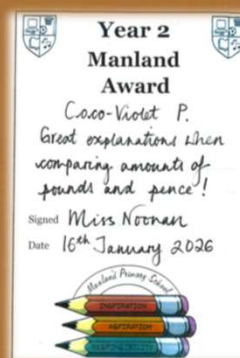 Year 2
Manland
Award
Coco-Violet P.
Great explanations when
comparing amounts of
pounds and pence!
Signed Miss Noonan
Date 16th January 2026
Manland Primary School
INSPIRATION
ASPIRATION